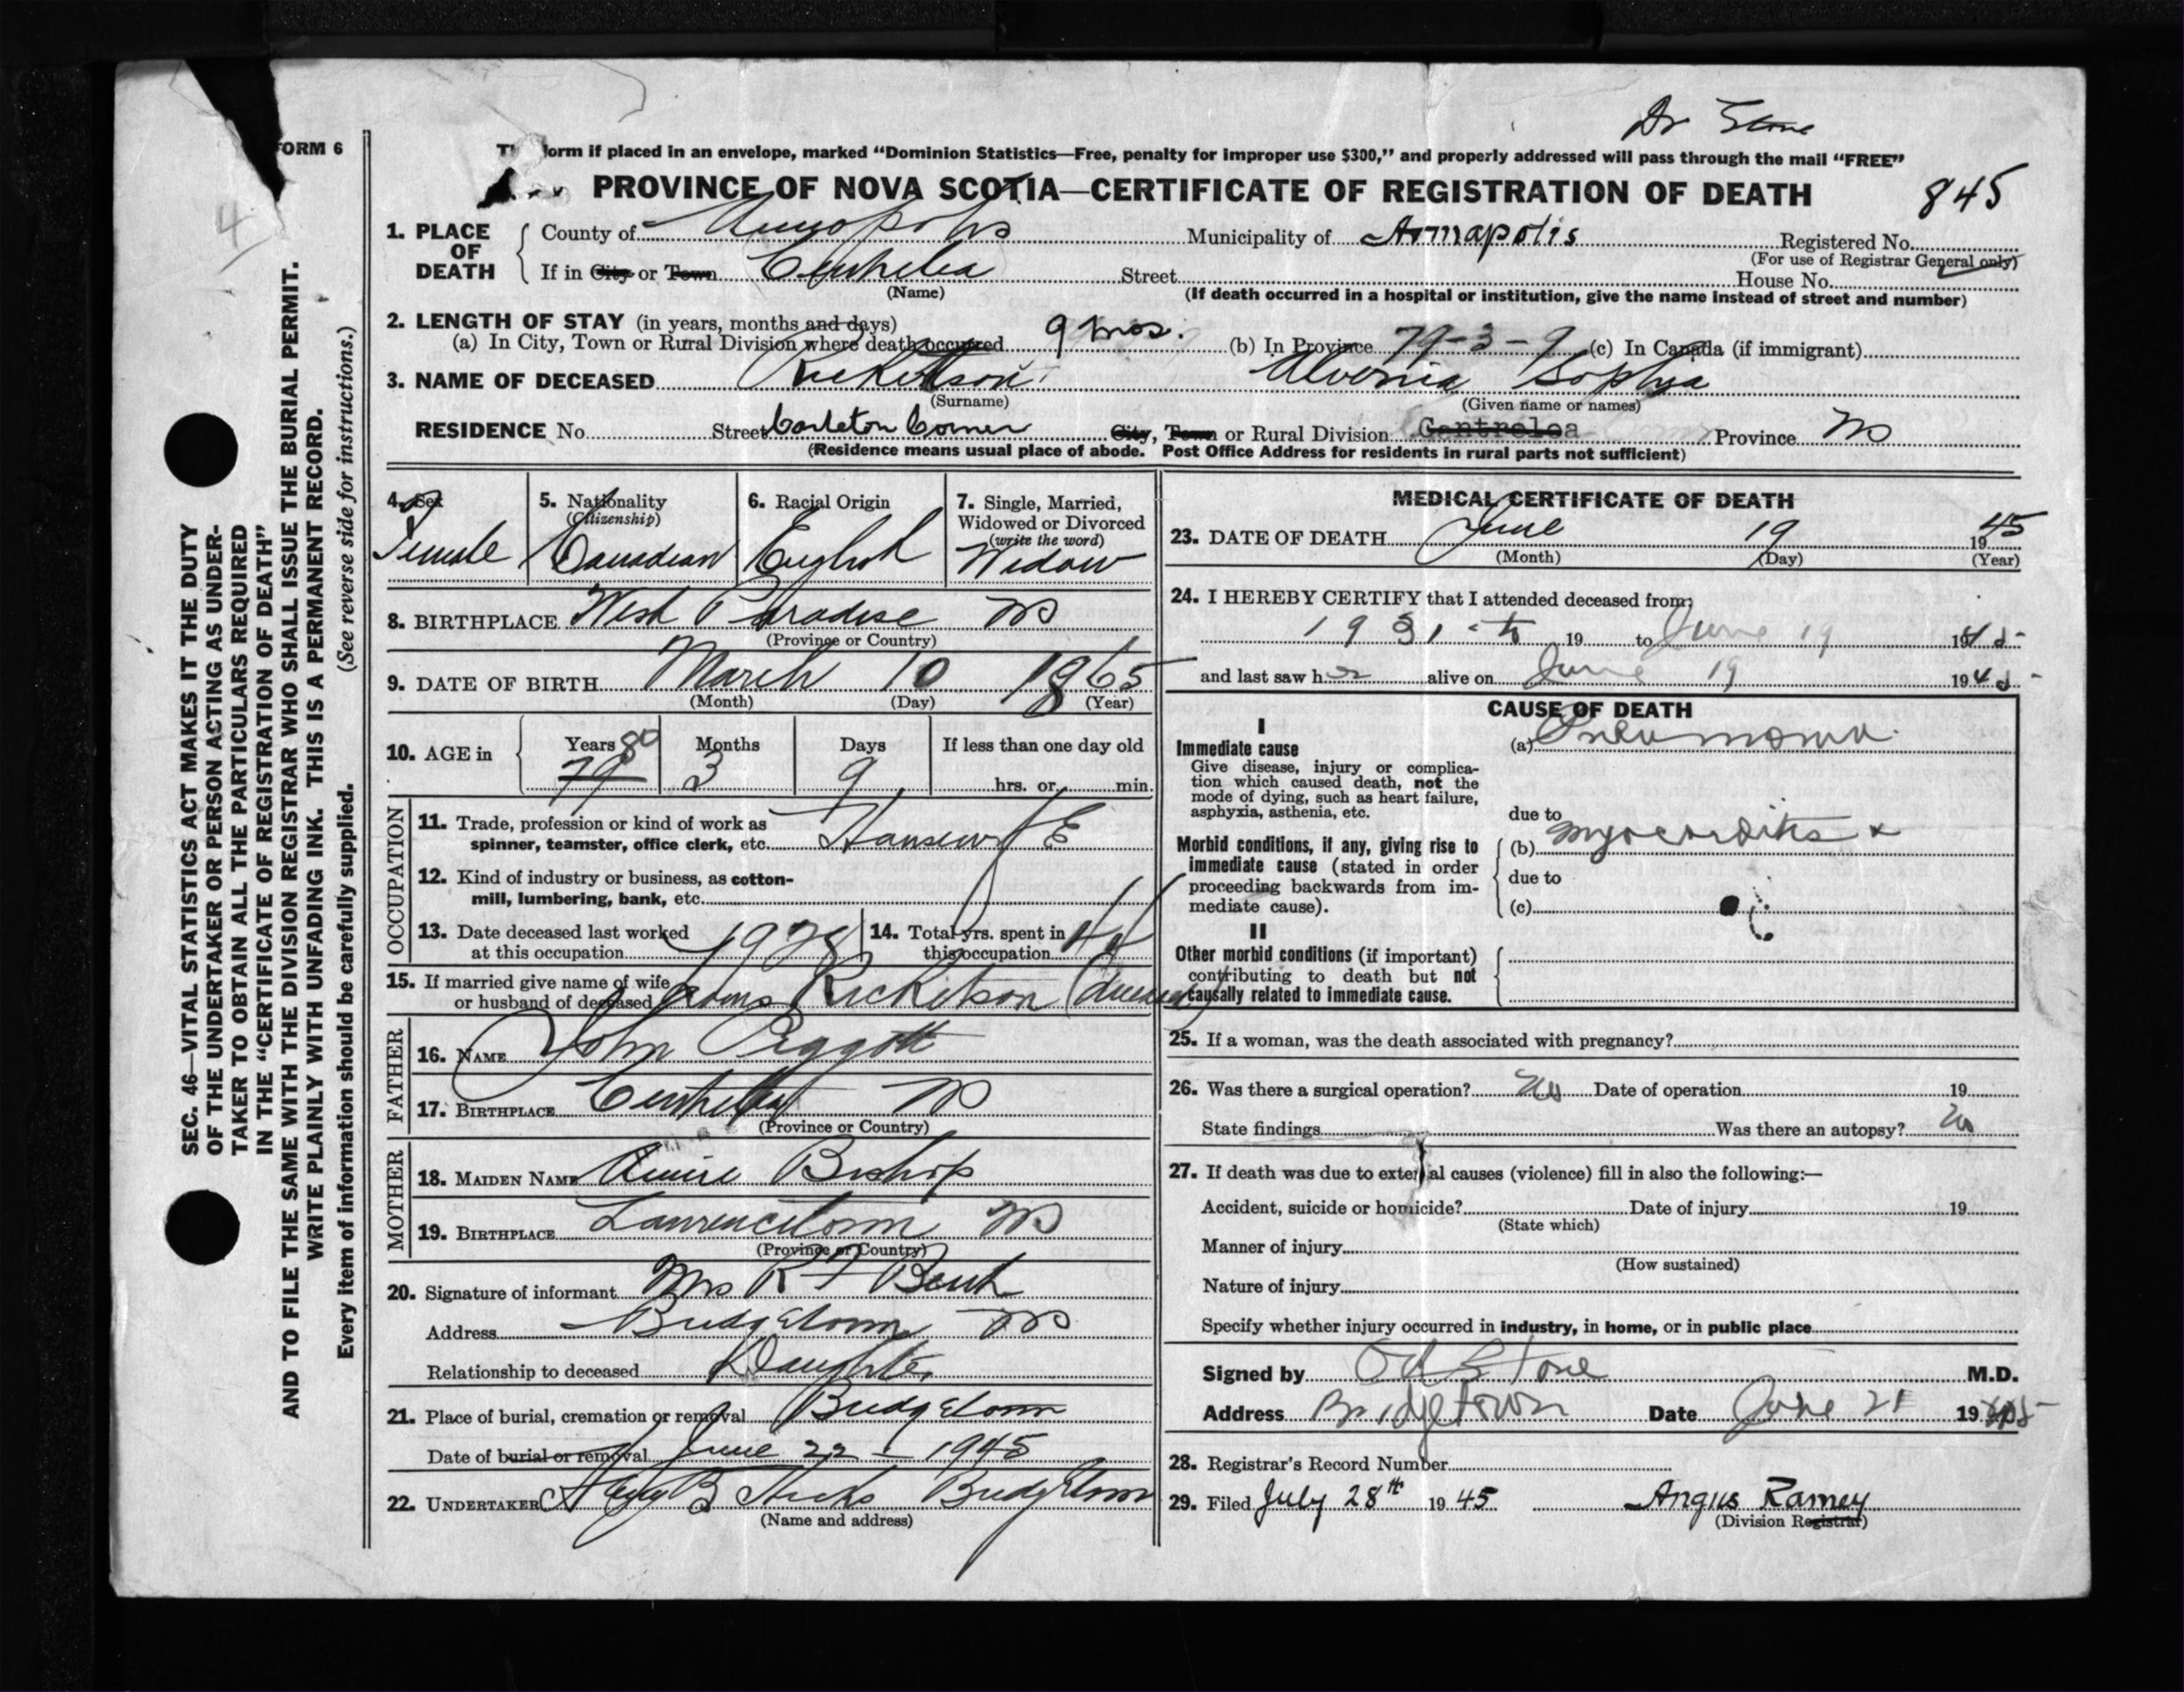 Dr Stone
FORM 6
form if placed in an envelope, marked "Dominion Statistics—Free, penalty for improper use $300," and properly addressed will pass through the mail "FREE"
PROVINCE OF NOVA SCOTIA—CERTIFICATE OF REGISTRATION OF DEATH
845
4
1. PLACE OF DEATH
County of Annapolis Municipality of Annapolis Registered No.
(For use of Registrar General only)
If in City or Town Centrelea Street House No.
(Name) (If death occurred in a hospital or institution, give the name instead of street and number)
2. LENGTH OF STAY (in years, months and days)
(a) In City, Town or Rural Division where death occurred 9 mos. (b) In Province 79-3-9 (c) In Canada (if immigrant)
3. NAME OF DECEASED Ricketson Alvenia Sophia
(Surname) (Given name or names)
RESIDENCE No. Street Carleton Corner City, Town or Rural Division Centrelea Province NS
(Residence means usual place of abode. Post Office Address for residents in rural parts not sufficient)
4. Sex Female
5. Nationality (Citizenship) Canadian
6. Racial Origin English
7. Single, Married, Widowed or Divorced (write the word) Widow
8. BIRTHPLACE West Paradise NS
(Province or Country)
9. DATE OF BIRTH March 10 1865
(Month) (Day) (Year)
10. AGE in Years 79 80 Months 3 Days 9 If less than one day old hrs. or min.
OCCUPATION
11. Trade, profession or kind of work as
spinner, teamster, office clerk, etc. Housewife
12. Kind of industry or business, as cotton-
mill, lumbering, bank, etc.
13. Date deceased last worked at this occupation 1928
14. Total yrs. spent in this occupation 44
15. If married give name of wife
or husband of deceased Ricketson
FATHER
16. NAME John Piggott
17. BIRTHPLACE Centrelea NS
(Province or Country)
MOTHER
18. MAIDEN NAME Annie Bishop
19. BIRTHPLACE Lawrencetown NS
(Province or Country)
20. Signature of informant Mrs R F
Address Bridgetown NS
Relationship to deceased Daughter
21. Place of burial, cremation or removal Bridgetown
Date of burial or removal June 22 - 1945
22. UNDERTAKER B Hicks Bridgetown
(Name and address)
MEDICAL CERTIFICATE OF DEATH
23. DATE OF DEATH June 19 1945
(Month) (Day) (Year)
24. I HEREBY CERTIFY that I attended deceased from:
1931 to 19 to June 19 1945
and last saw her alive on June 19 1945
CAUSE OF DEATH
I
Immediate cause
Give disease, injury or complica-
tion which caused death, not the
mode of dying, such as heart failure,
asphyxia, asthenia, etc.
(a) Pneumonia
due to
Morbid conditions, if any, giving rise to
immediate cause (stated in order
proceeding backwards from im-
mediate cause).
(b) Myocarditis
due to
(c)
II
Other morbid conditions (if important)
contributing to death but not
causally related to immediate cause.
25. If a woman, was the death associated with pregnancy?
26. Was there a surgical operation? No Date of operation 19
State findings Was there an autopsy? No
27. If death was due to external causes (violence) fill in also the following:—
Accident, suicide or homicide? Date of injury 19
(State which)
Manner of injury
(How sustained)
Nature of injury
Specify whether injury occurred in industry, in home, or in public place
Signed by Stone M.D.
Address Bridgetown Date June 21 1945
28. Registrar's Record Number
29. Filed July 28th 1945 Angus Ramey
(Division Registrar)
SEC. 46—VITAL STATISTICS ACT MAKES IT THE DUTY
OF THE UNDERTAKER OR PERSON ACTING AS UNDER-
TAKER TO OBTAIN ALL THE PARTICULARS REQUIRED
IN THE "CERTIFICATE OF REGISTRATION OF DEATH"
AND TO FILE THE SAME WITH THE DIVISION REGISTRAR WHO SHALL ISSUE THE BURIAL PERMIT.
WRITE PLAINLY WITH UNFADING INK. THIS IS A PERMANENT RECORD.
Every item of information should be carefully supplied. (See reverse side for instructions.)